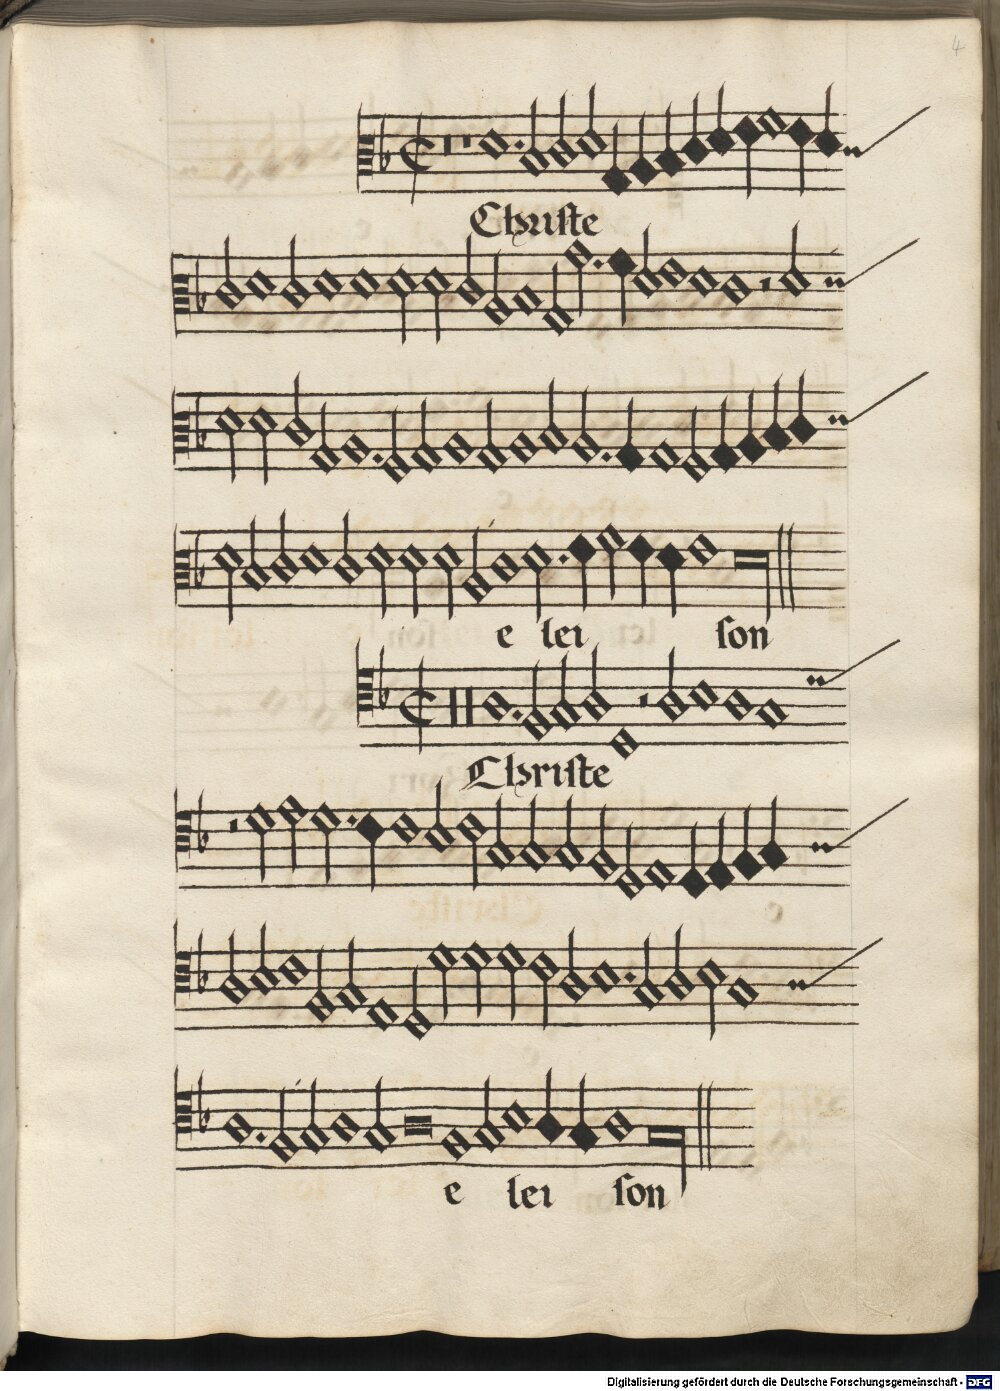 4
Christe
e lei son
Christe
e lei son
Digitalisierung gefördert durch die Deutsche Forschungsgemeinschaft - DFG